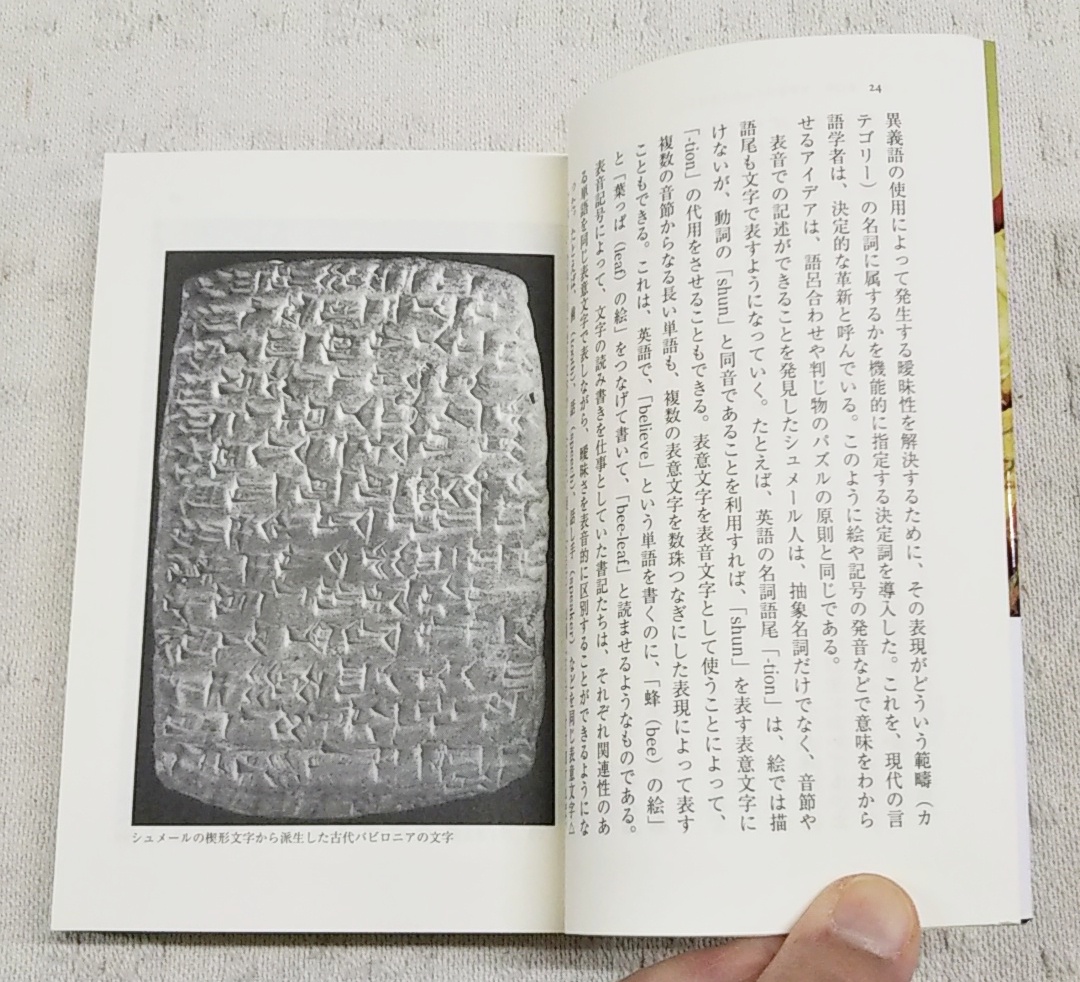 24
異義語の使用によって発生する曖昧性を解決するために、その表現がどういう範疇（カ
テゴリー）の名詞に属するかを機能的に指定する決定詞を導入した。これを、現代の言
語学者は、決定的な革新と呼んでいる。このように絵や記号の発音などで意味をわから
せるアイデアは、語呂合わせや判じ物のパズルの原則と同じである。
表音での記述ができることを発見したシュメール人は、抽象名詞だけでなく、音節や
語尾も文字で表すようになっていく。たとえば、英語の名詞語尾「-tion」は、絵では描
けないが、動詞の「shun」と同音であることを利用すれば、「shun」を表す表意文字に
「-tion」の代用をさせることもできる。表意文字を表音文字として使うことによって、
複数の音節からなる長い単語も、複数の表意文字を数珠つなぎにした表現によって表す
こともできる。これは、英語で、「believe」という単語を書くのに、「蜂（bee）の絵」
と「葉っぱ（leaf）の絵」をつなげて書いて、「bee-leaf」と読ませるようなものである。
表音記号によって、文字の読み書きを仕事としていた書記たちは、それぞれ関連性のあ
る単語を同じ表意文字で表しながら、曖昧さを表音的に区別することができるようにな
シュメールの楔形文字から派生した古代バビロニアの文字